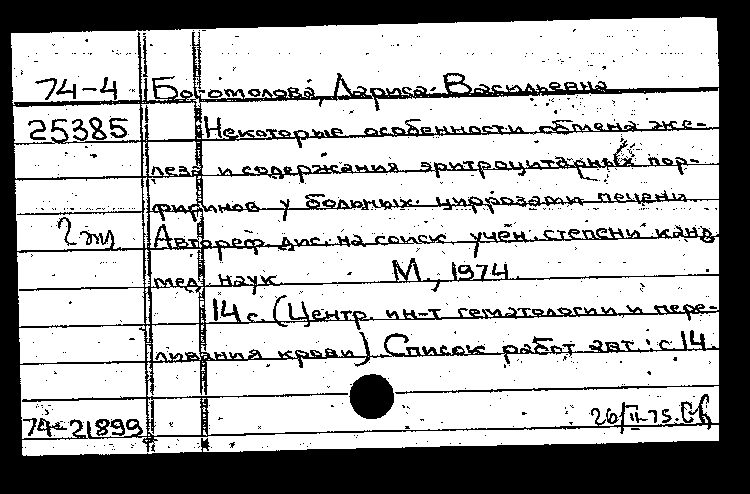 74-4 Богомолова, Лариса Васильевна
25385 Некоторые особенности обмена же-
леза и содержания эритроцитарных пор-
фиринов у больных циррозами печени.
2 эк Автореф. дис. на соиск. учен. степени канд.
мед. наук. М., 1974.
14 с. (Центр. ин-т гематологии и пере-
ливания крови) Список работ авт.: с 14.
74-21899 26/II-75.